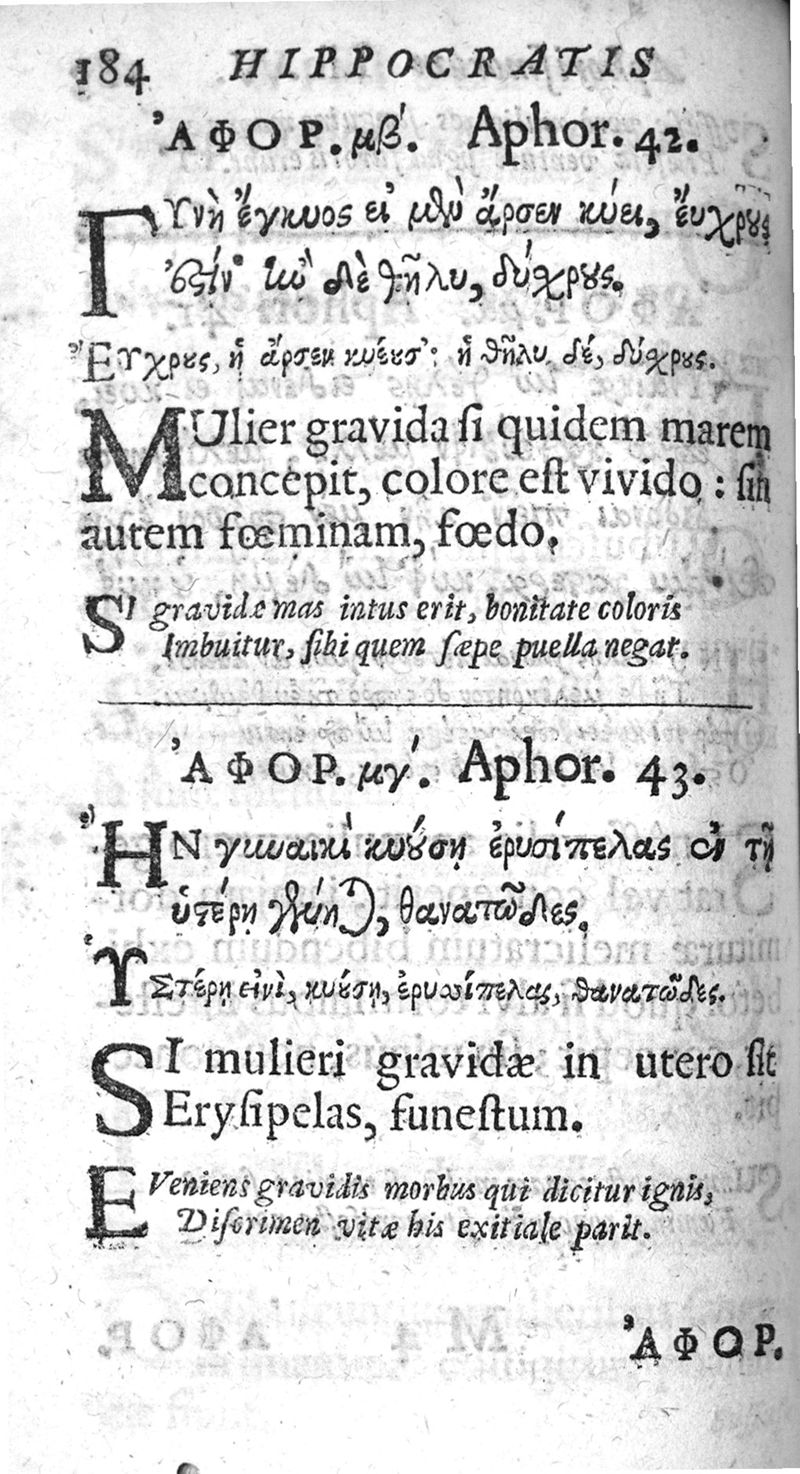 184 HIPPOCRATIS
ἈΦΟΡ. μβ′. Aphor. 42.
Γυνὴ ἔγκυος εἰ μὲν ἄρσεν κύει, ἔυχρους
ἐστίν· ἢν δὲ θῆλυ, δύχρους.
Ἔυχρους, ἡ ἄρσεν κυέουσ': ἡ θῆλυ δέ, δύχρους.
MUlier gravida ſi quidem marem
concepit, colore eſt vivido : ſin
autem fœminam, fœdo.
SI gravidæ mas intus erit, bonitate coloris
Imbuitur, ſibi quem ſæpe puella negat.
ἈΦΟΡ. μγ′. Aphor. 43.
ἪΝ γυναικὶ κυούσῃ ἐρυσίπελας ἐν τῇ
ὑστέρῃ γένηται, θανατῶδες.
ὙΣτέρῃ εἰνὶ, κυούσῃ, ἐρυσίπελας, θανατῶδες.
SI mulieri gravidæ in utero fit
Eryſipelas, funeſtum.
EVeniens gravidis morbus qui dicitur ignis,
Diſcrimen vitæ his exitiale parit.
ἈΦΟΡ.